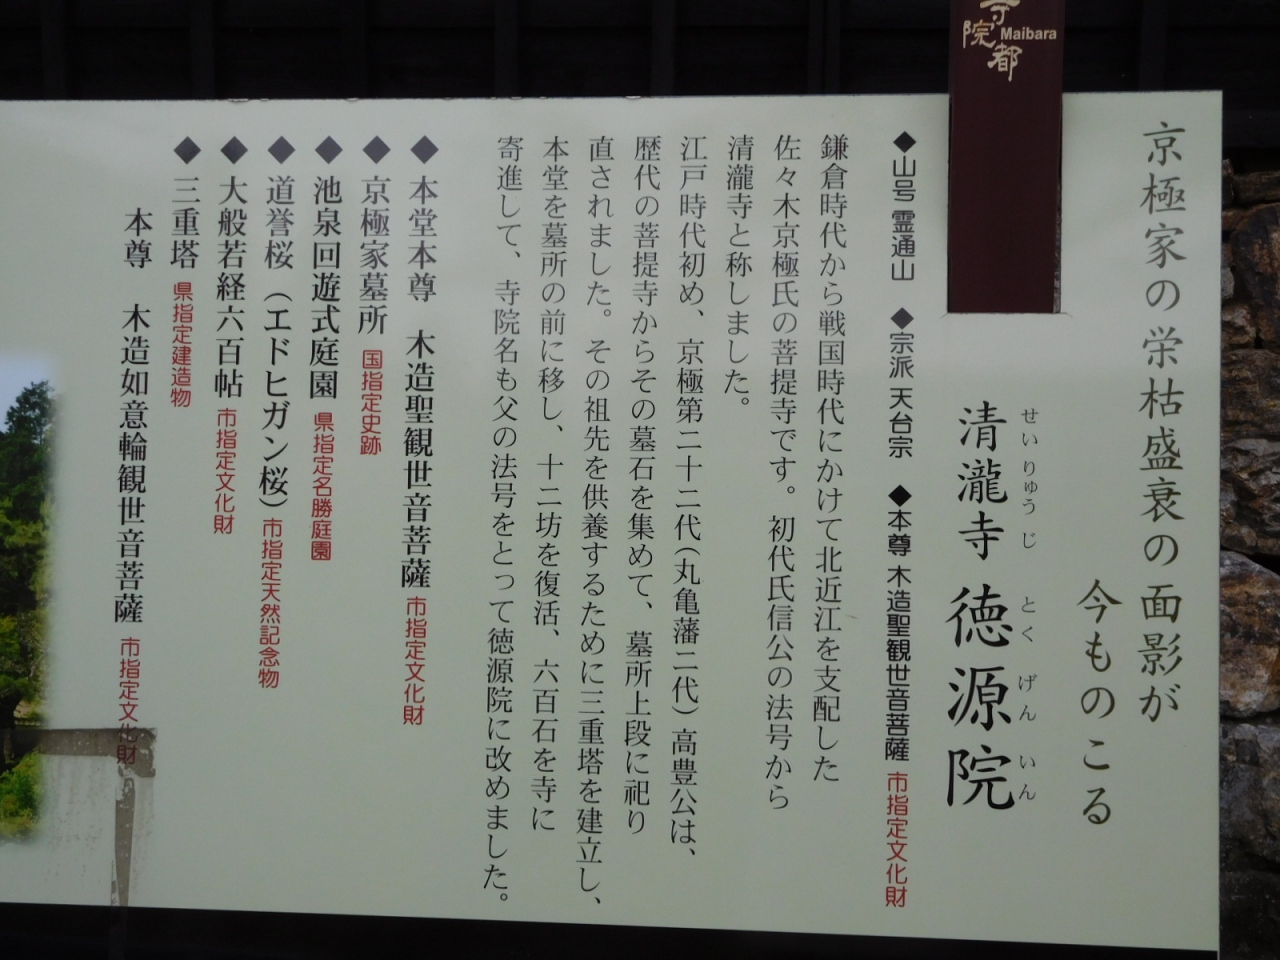 寺院都
Maibara
京極家の栄枯盛衰の面影が
今ものこる
せいりゅうじ とくげんいん
清瀧寺 徳源院
◆山号 霊通山 ◆宗派 天台宗 ◆本尊 木造聖観世音菩薩 市指定文化財
鎌倉時代から戦国時代にかけて北近江を支配した
佐々木京極氏の菩提寺です。初代氏信公の法号から
清瀧寺と称しました。
江戸時代初め、京極第二十二代(丸亀藩二代)高豊公は、
歴代の菩提寺からその墓石を集めて、墓所上段に祀り
直されました。その祖先を供養するために三重塔を建立し、
本堂を墓所の前に移し、十二坊を復活、六百石を寺に
寄進して、寺院名も父の法号をとって徳源院に改めました。
◆本堂本尊 木造聖観世音菩薩 市指定文化財
◆京極家墓所 国指定史跡
◆池泉回遊式庭園 県指定名勝庭園
◆道誉桜(エドヒガン桜)市指定天然記念物
◆大般若経六百帖 市指定文化財
◆三重塔 県指定建造物
本尊 木造如意輪観世音菩薩 市指定文化財